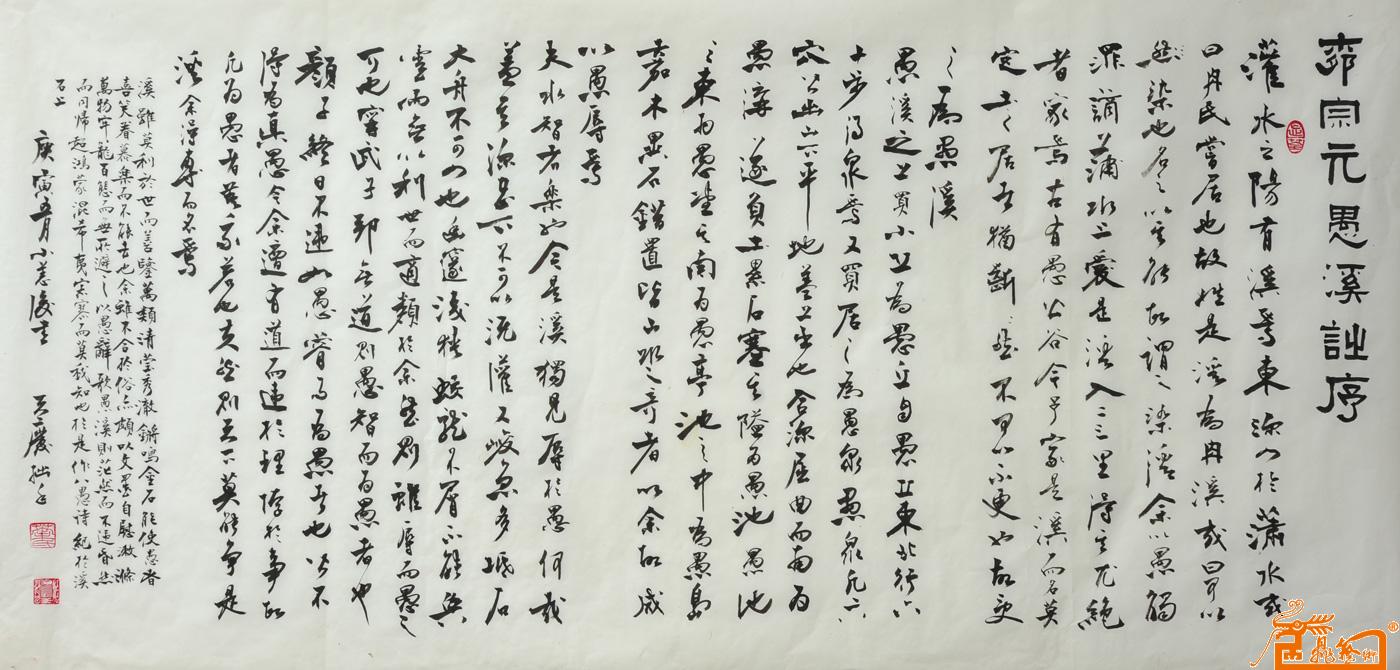 柳宗元愚溪詩序
灌水之陽有溪焉東流入於瀟水或
曰冉氏嘗居也故姓是溪為冉溪或曰可以
染也名之以其能故謂之染溪余以愚觸
罪謫瀟水上愛是溪入二三里得其尤絕
者家焉古有愚公谷今予家是溪而名莫
定土之居者猶齗齗然不可以不更也故更
之為愚溪
愚溪之上買小丘為愚丘自愚丘東北行六
十步得泉焉又買居之為愚泉愚泉凡六
穴皆出山下平地蓋上出也合流屈曲而南為
愚溝遂負土累石塞其隘為愚池愚池
之東為愚堂其南為愚亭池之中為愚島
嘉木異石錯置皆山水之奇者以余故咸
以愚辱焉
夫水智者樂也今是溪獨見辱於愚何哉
蓋其流甚下不可以溉灌又峻急多坻石
大舟不可入也幽邃淺狹蛟龍不屑不能興
雲雨無以利世而適類於余然則雖辱而愚之
可也甯武子邦無道則愚智而為愚者也
顏子終日不違如愚睿而為愚者也皆不
得為真愚今余遭有道而違於理悖於事故
凡為愚者莫我若也夫然則天下莫能爭是
溪余得專而名焉
溪雖莫利於世而善鑒萬類清瑩秀澈鏘鳴金石能使愚者
喜笑眷慕樂而不能去也余雖不合於俗亦頗以文墨自慰漱滌
萬物牢籠百態而無所避之以愚辭歌愚溪則茫然而不違昏然
而同歸超鴻蒙混希夷寂寥而莫我知也於是作八愚詩紀於溪
石上
庚寅五月小